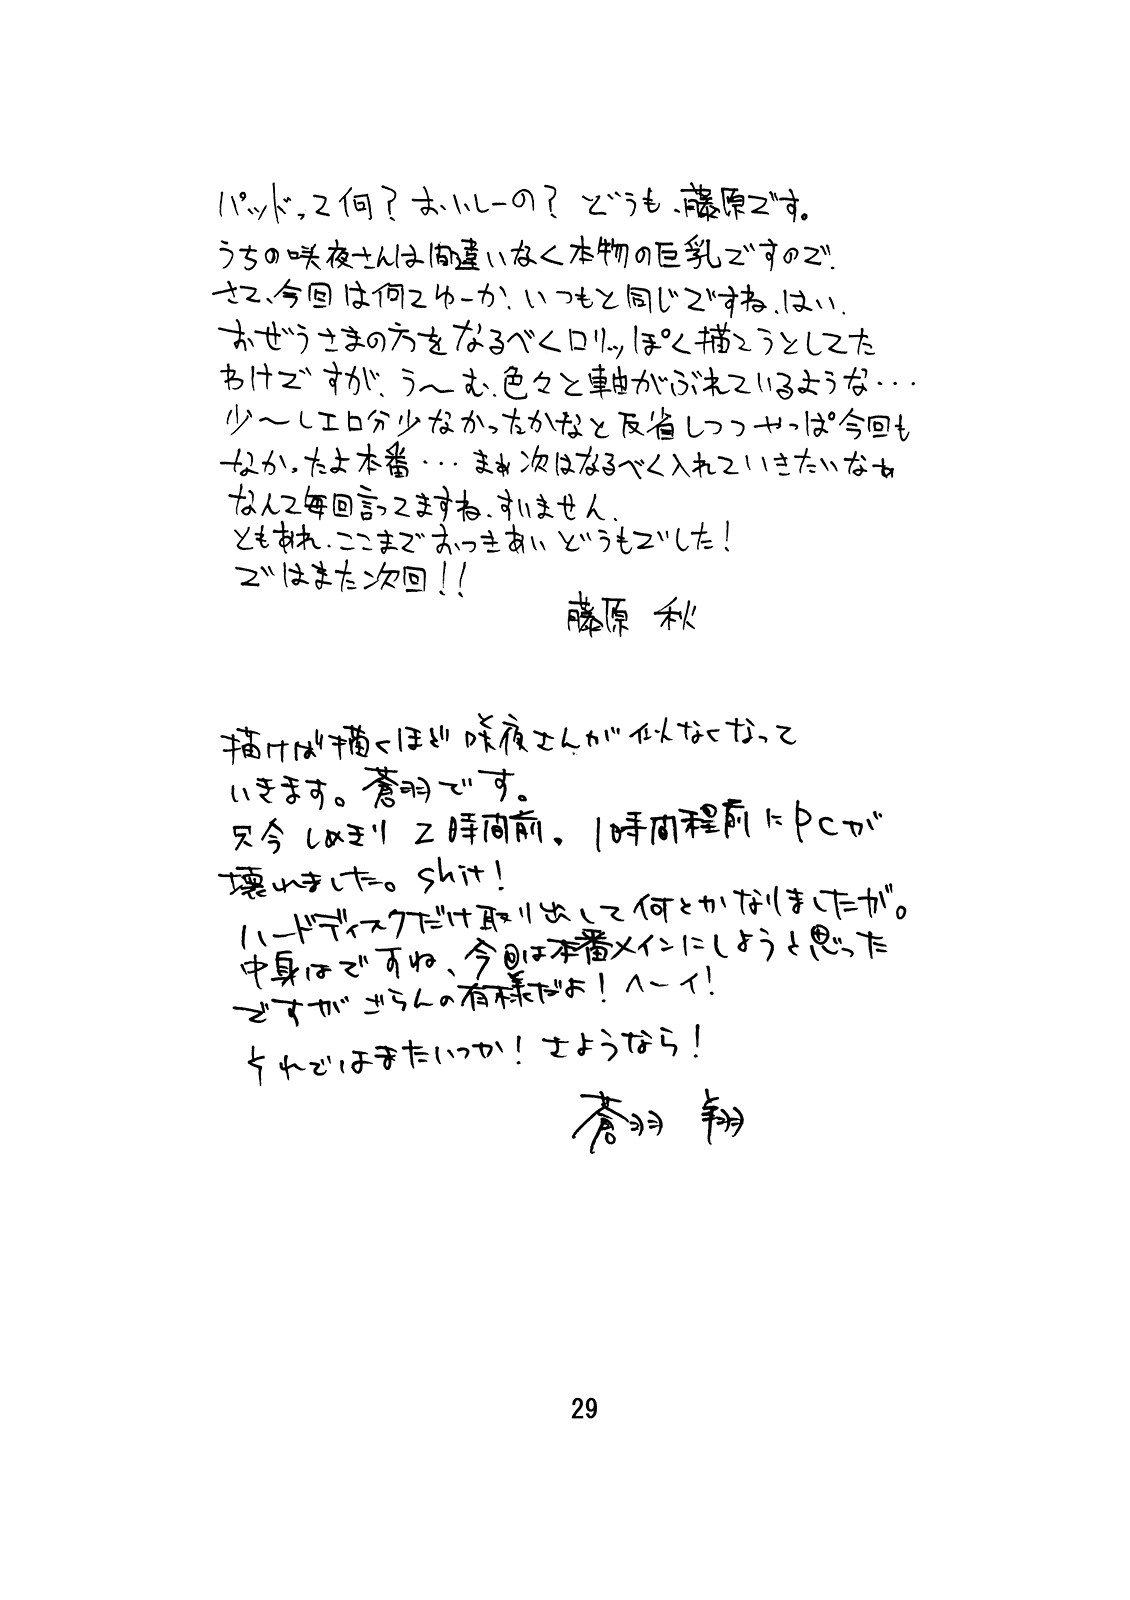 パッドって何？おいしーの？どうも、藤原です。
うちの咲夜さんは間違いなく本物の巨乳ですので、
さて、今回は何てゆーか、いつもと同じですね、はい、
おぜうさまの方をなるべくロリッぽく描こうとしてた
わけですが、う～む、色々と軸がぶれているような・・・
少～しエロ分少なかったかなと反省しつつやっぱ今回も
なかったよ本番・・・まぁ次はなるべく入れていきたいなぁ
なんて毎回言ってますね、すいません、
ともあれ、ここまでおつきあいどうもでした！
ではまた次回！！
藤原 秋
描けば描くほど咲夜さんが似なくなって
いきます。蒼羽です。
只今しめきり2時間前。1時間程前にPCが
壊れました。shit！
ハードディスクだけ取り出して何とかなりましたが。
中身はですね、今回は本番メインにしようと思った
ですがごらんの有様だよ！ヘーイ！
それではまたいつか！さようなら！
蒼羽 翔
29